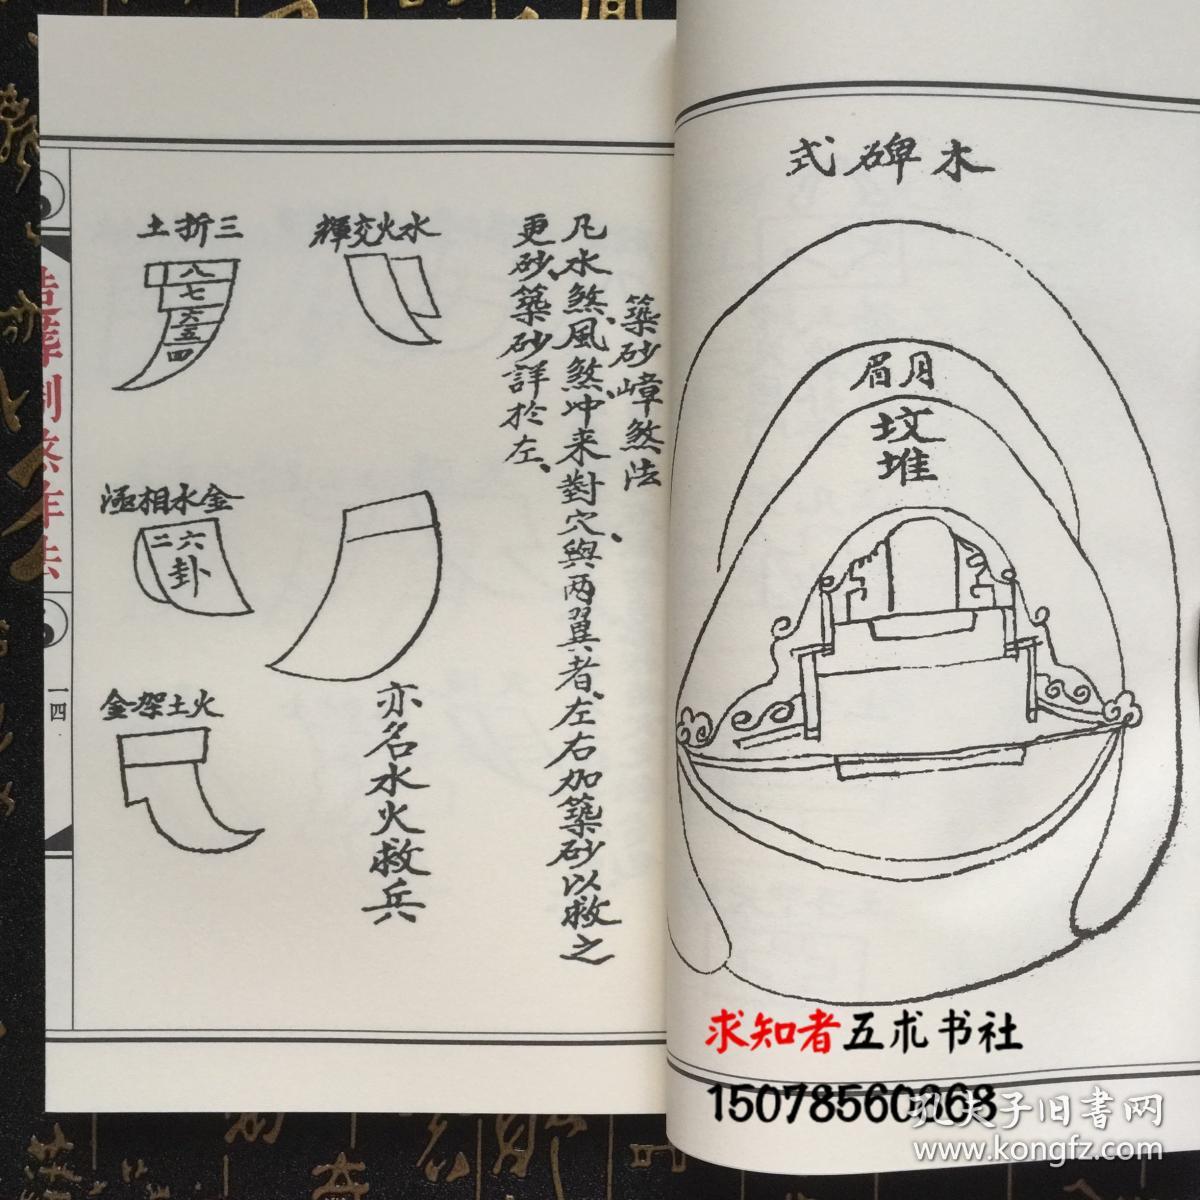 木碑式
月眉
坟堆
築砂嶂煞法
凡水煞風煞冲来對穴與两翼者左右加築砂以救之
更砂築砂詳於左
水火交輝
三折土
八
七
六
五
四
亦名水火救兵
金水相涵
六二
卦
火土架金
造葬制煞作法
一四
求知者五术书社
15078560868
孔夫子旧書网
www.kongfz.com